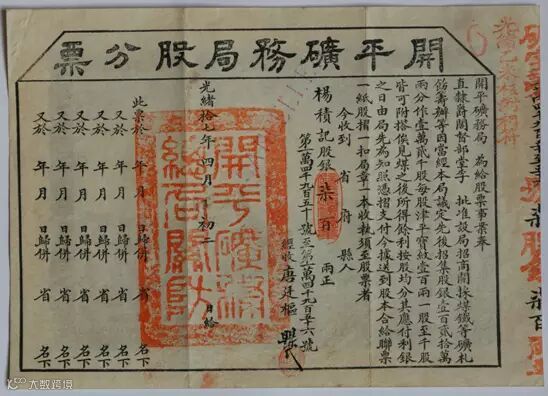 開平礦務局股分票
開平礦務局 為給股票事案奉
直隸爵閣督部堂李 批准設局招商開採煤鐵等礦札
飭籌辦等因當經本局議定先後招集股銀壹百貳拾萬
兩分作壹萬貳千股每股津平寶紋壹百兩一股至千股
皆可附搭俟見煤之後所得餘利按股均分其應付利銀
之日由局先為知照憑摺支付今據送到股本合給聯票
一紙股摺一扣局章一本收執須至股票者
今收到 省 府 縣人
楊積記股銀柒百兩正
第一萬四千九百五十號至第一萬四千九百五十六號
經收唐廷樞
光緒拾七年四月初二日給
開平礦務總局關防
此票於 年 月 日歸併 省 名下
又於 年 月 日歸併 省 名下
又於 年 月 日歸併 省 名下
又於 年 月 日歸併 省 名下
大数跨境